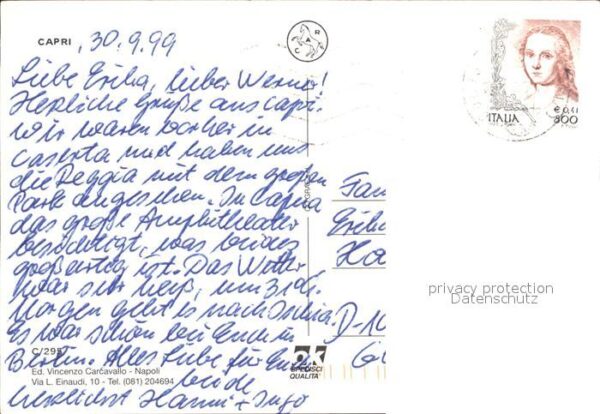 CAPRI , 30.9.99
Liebe Erika, lieber Werner!
Herzliche Grüße aus Capri.
Wir waren vorher in
Caserta und haben uns
die Reggia mit dem großen
Park angesehen. In Capua
das große Amphitheater
besichtigt, was beides
großartig ist. Das Wetter
war sehr heiß, um 31°C.
Morgen geht es nach Ischia.
Es war schön bei Euch in
Berlin. Alles Liebe für Euch
beide
herzlichst Hanni + Ingo
C/295
Ed. Vincenzo Carcavallo - Napoli
Via L. Einaudi, 10 - Tel. (081) 204694
C A R
OK
QUALITA'
ITALIA
€ 0,41
800
Fam
Erika
D-10
privacy protection
Datenschutz